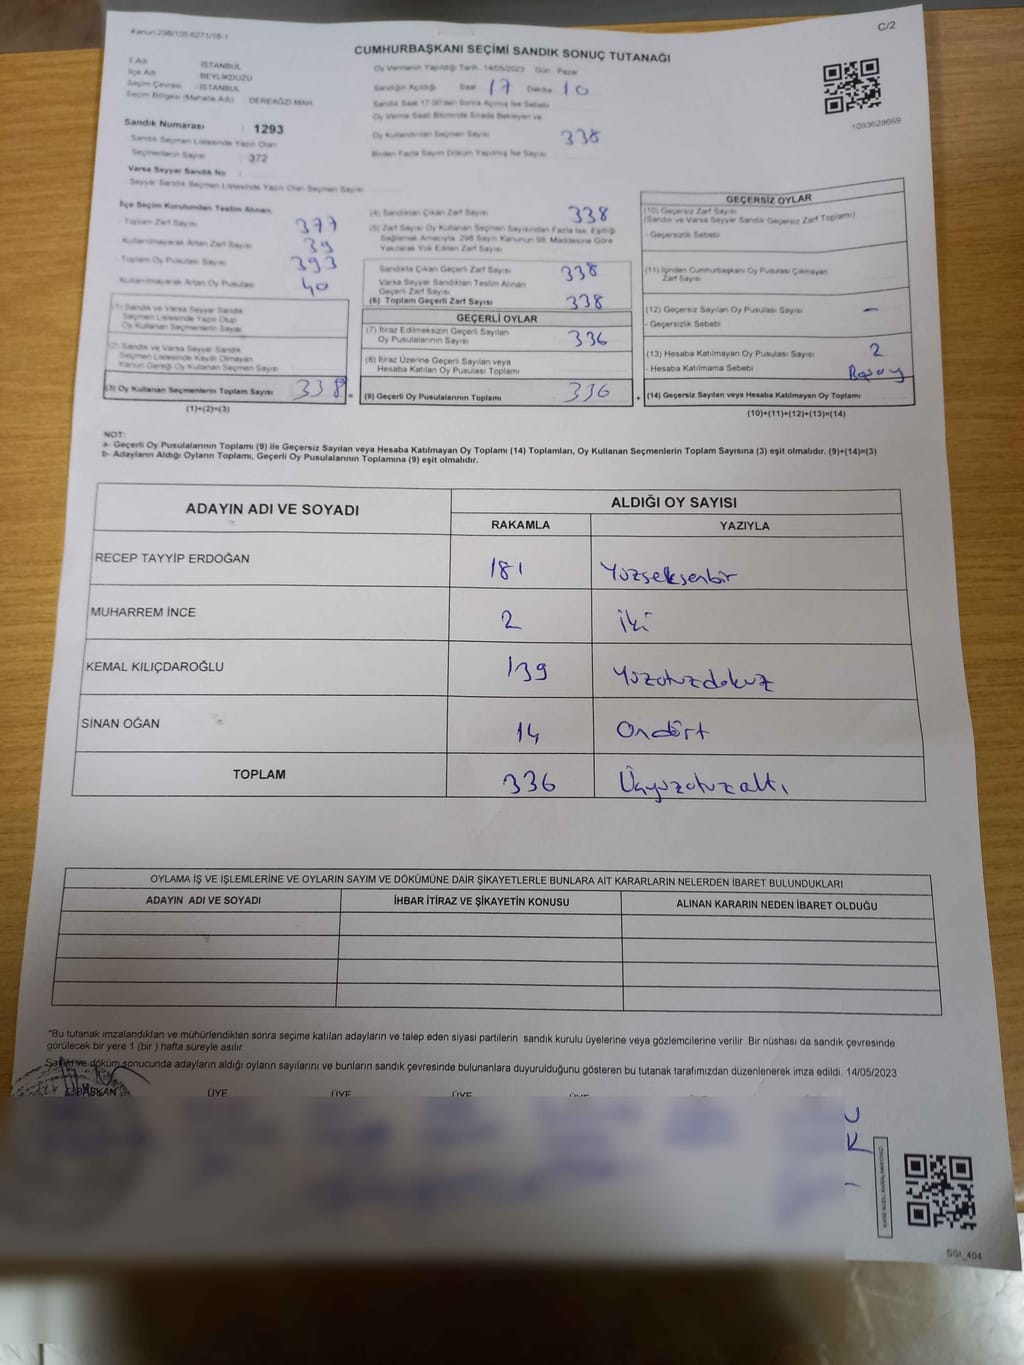 Kanun:298/105-6271/18-1
C/2
CUMHURBAŞKANI SEÇİMİ SANDIK SONUÇ TUTANAĞI
İl Adı : İSTANBUL
İlçe Adı : BEYLİKDÜZÜ
Seçim Çevresi : İSTANBUL
Seçim Bölgesi (Mahalle Adı) : DEREAĞZI MAH.
Oy Vermenin Yapıldığı Tarih 14/05/2023 Gün Pazar
Sandığın Açıldığı Saat 17 Dakika 10
Sandık Saat 17:00'den Sonra Açılmış İse Sebebi
Oy Verme Saati Bitiminde Sırada Bekleyen ve
Oy Kullandırılan Seçmen Sayısı 338
Birden Fazla Sayım Döküm Yapılmış İse Sayısı
1093628669
Sandık Numarası : 1293
Sandık Seçmen Listesinde Yazılı Olan
Seçmenlerin Sayısı : 372
Varsa Seyyar Sandık No :
Seyyar Sandık Seçmen Listesinde Yazılı Olan Seçmen Sayısı
İlçe Seçim Kurulundan Teslim Alınan;
Toplam Zarf Sayısı 377
Kullanılmayarak Artan Zarf Sayısı 39
Toplam Oy Pusulası Sayısı 393
Kullanılmayarak Artan Oy Pusulası 40
(1) Sandık ve Varsa Seyyar Sandık
Seçmen Listesinde Yazılı Olup
Oy Kullanan Seçmenlerin Sayısı
(2) Sandık ve Varsa Seyyar Sandık
Seçmen Listesinde Kayıtlı Olmayan
Kanun Gereği Oy Kullanan Seçmen Sayısı
(3) Oy Kullanan Seçmenlerin Toplam Sayısı 338
(1)+(2)=(3)
(4) Sandıktan Çıkan Zarf Sayısı 338
(5) Zarf Sayısı Oy Kullanan Seçmen Sayısından Fazla İse, Eşitliği
Sağlamak Amacıyla, 298 Sayılı Kanunun 98. Maddesine Göre
Yakılarak Yok Edilen Zarf Sayısı
Sandıkta Çıkan Geçerli Zarf Sayısı 338
Varsa Seyyar Sandıktan Teslim Alınan
Geçerli Zarf Sayısı
(6) Toplam Geçerli Zarf Sayısı 338
GEÇERLİ OYLAR
(7) İtiraz Edilmeksizin Geçerli Sayılan
Oy Pusulalarının Sayısı 336
(8) İtiraz Üzerine Geçerli Sayılan veya
Hesaba Katılan Oy Pusulası Toplamı
= (9) Geçerli Oy Pusulalarının Toplamı 336 +
GEÇERSİZ OYLAR
(10) Geçersiz Zarf Sayısı
(Sandık ve Varsa Seyyar Sandık Geçersiz Zarf Toplamı)
- Geçersizlik Sebebi
(11) İçinden Cumhurbaşkanı Oy Pusulası Çıkmayan
Zarf Sayısı
(12) Geçersiz Sayılan Oy Pusulası Sayısı –
- Geçersizlik Sebebi
(13) Hesaba Katılmayan Oy Pusulası Sayısı 2
- Hesaba Katılmama Sebebi
(14) Geçersiz Sayılan veya Hesaba Katılmayan Oy Toplamı
(10)+(11)+(12)+(13)=(14)
NOT:
a- Geçerli Oy Pusulalarının Toplamı (9) ile Geçersiz Sayılan veya Hesaba Katılmayan Oy Toplamı (14) Toplamları, Oy Kullanan Seçmenlerin Toplam Sayısına (3) eşit olmalıdır. (9)+(14)=(3)
b- Adayların Aldığı Oyların Toplamı, Geçerli Oy Pusulalarının Toplamına (9) eşit olmalıdır.
ADAYIN ADI VE SOYADI
ALDIĞI OY SAYISI
RAKAMLA YAZIYLA
RECEP TAYYİP ERDOĞAN 181 Yüzseksenbir
MUHARREM İNCE 2 iki
KEMAL KILIÇDAROĞLU 139 Yüzotuzdokuz
SİNAN OĞAN 14 Ondört
TOPLAM 336 Üçyüzotuzaltı
OYLAMA İŞ VE İŞLEMLERİNE VE OYLARIN SAYIM VE DÖKÜMÜNE DAİR ŞİKAYETLERLE BUNLARA AİT KARARLARIN NELERDEN İBARET BULUNDUKLARI
ADAYIN ADI VE SOYADI İHBAR İTİRAZ VE ŞİKAYETİN KONUSU ALINAN KARARIN NEDEN İBARET OLDUĞU
*Bu tutanak imzalandıktan ve mühürlendikten sonra seçime katılan adayların ve talep eden siyasi partilerin sandık kurulu üyelerine veya gözlemcilerine verilir. Bir nüshası da sandık çevresinde
görülecek bir yere 1 (bir ) hafta süreyle asılır.
Sayım ve döküm sonucunda adayların aldığı oyların sayılarını ve bunların sandık çevresinde bulunanlara duyurulduğunu gösteren bu tutanak tarafımızdan düzenlenerek imza edildi. 14/05/2023
BAŞKAN ÜYE ÜYE ÜYE ÜYE
SSI_404